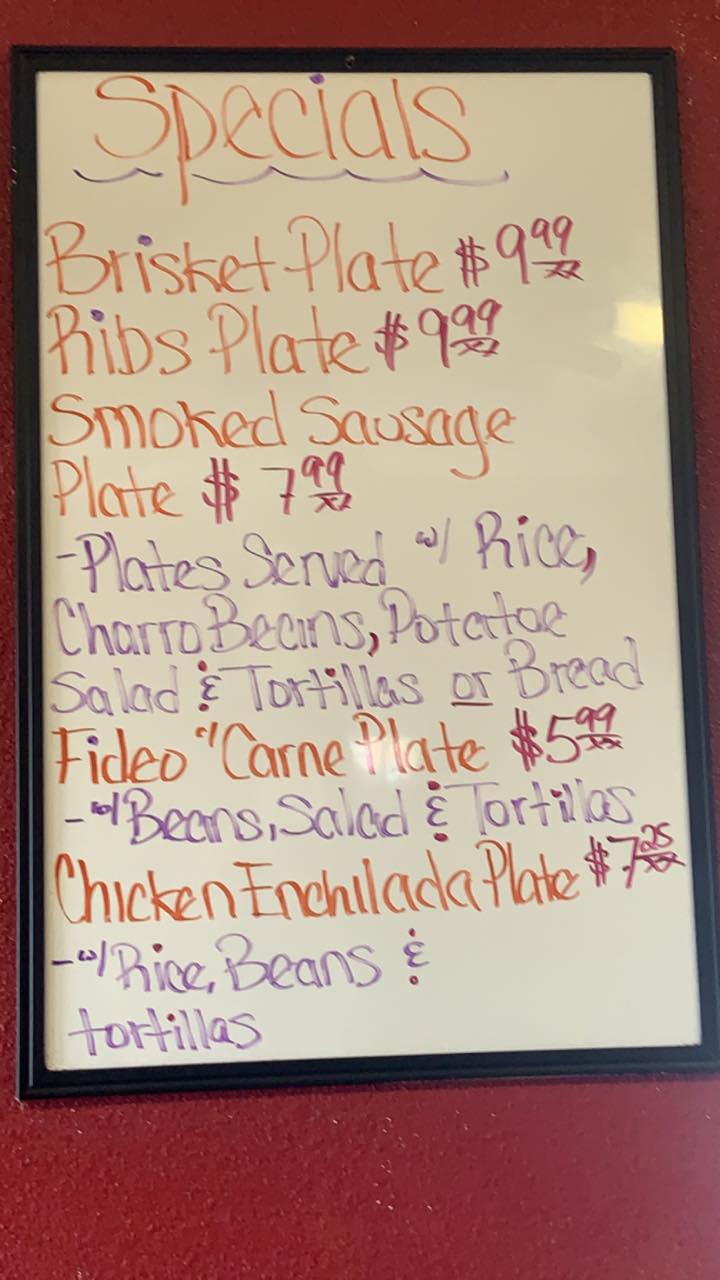 Specials
Brisket Plate $9.99
Ribs Plate $9.99
Smoked Sausage
Plate $7.99
-Plates Served w/ Rice,
Charro Beans, Potatoe
Salad & Tortillas or Bread
Fideo w/ Carne Plate $5.99
-w/ Beans, Salad & Tortillas
Chicken Enchilada Plate $7.25
-w/ Rice, Beans &
tortillas